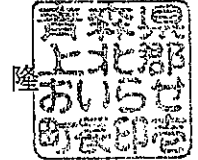 隆
青森県
上北郡
おいらせ
町